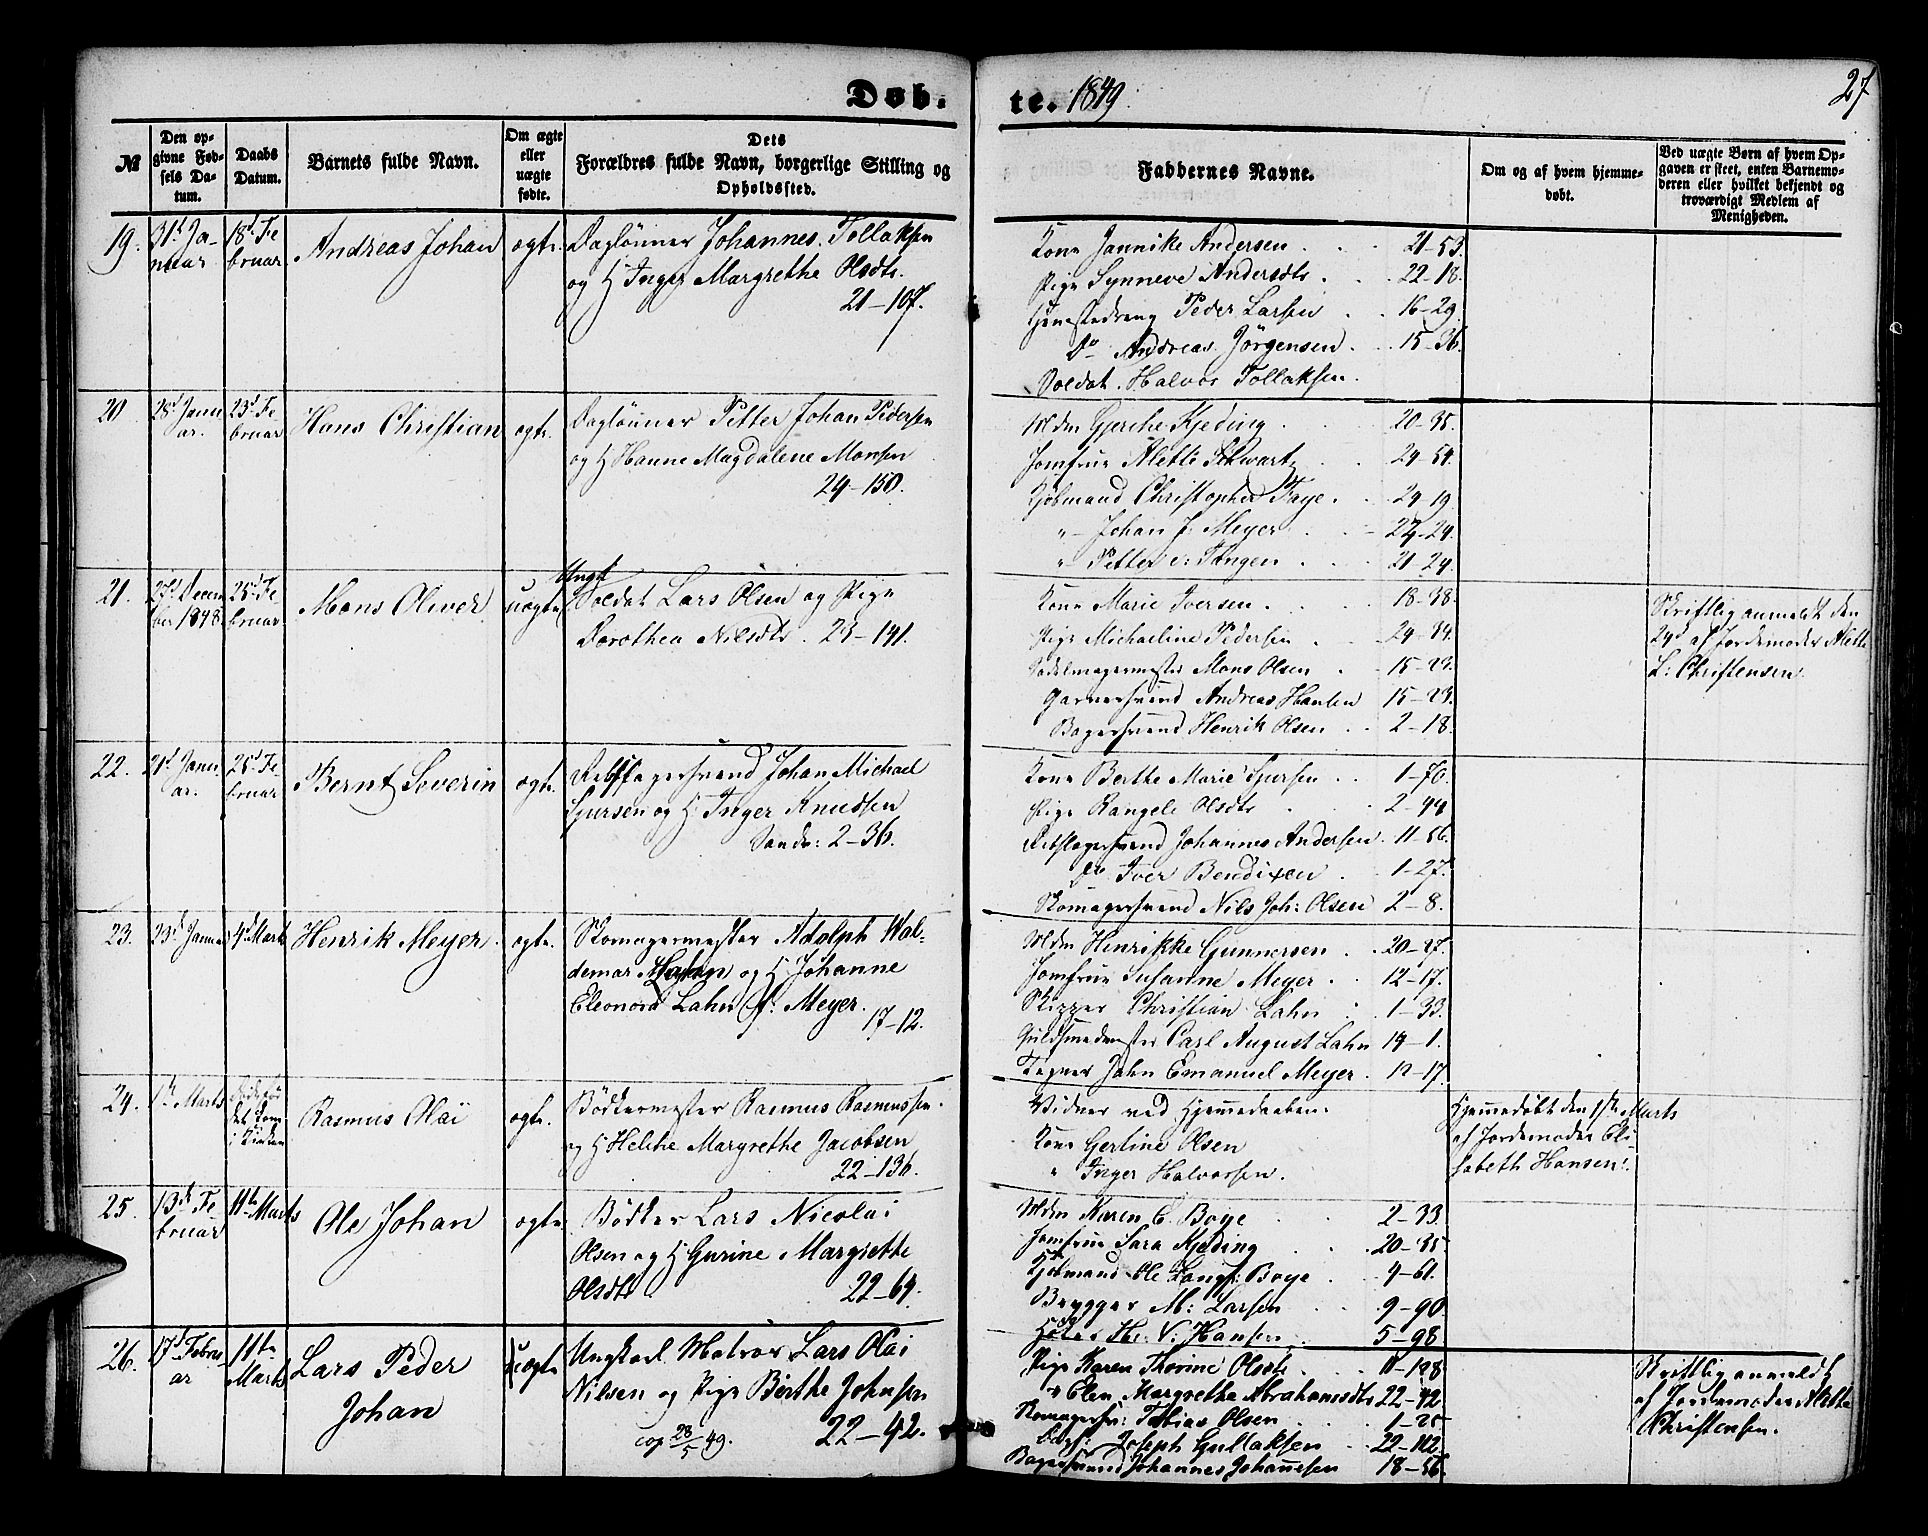 Døb-
te. 1849.
27
№
Den op-
givne Fød-
sels Da-
tum.
Daabs
Datum.
Barnets fulde Navn.
Om ægte
eller
uægte
fødte.
Dets
Forældres fulde Navn, borgerlige Stilling og
Opholdssted.
Faddernes Navne.
Om og af hvem hjemme-
døbt.
Ved uægte Børn af hvem Op-
gaven er skeet, enten Barnemo-
deren eller hvilket bekjendt og
troværdigt Medlem af
Menigheden.
19.
31t Ja-
nuar
18d Fe
bruar
Andreas Johan
ægte.
Daglønner Johannes Tollaksen
og H Inger Margrethe Olsdtr.
21–107.
Kone Jannike Andersen 21–53.
Pige Synneve Andersdtr 22–18.
Tjenestedreng Peder Larsen 16–29.
Do Andreas Jörgensen 15–36.
Soldat Halvor Tollaksen.
20.
28d Janu
ar.
23d Fe
bruar
Hans Christian
ægte.
Daglønner Petter Johan Pedersen
og H Hanne Magdalene Monsen
24–150.
Mdm Gjerche Kjeding 20–35.
Jomfrue Alette Schwartz 24–54.
Kjøbmand Christopher Faye 24–19
" Johan F. Meyer 24–24.
" Petter v: Tangen 21–24.
21.
27d Decem
ber 1848
25d Fe
bruar
Mons Oliver
uægte
Ungk
Soldat Lars Olsen og Pige
Dorothea Nilsdtr. 23–141.
Kone Marie Iversen 18–38.
Pige Michaeline Pedersen 24–34.
Sadelmagermester Mons Olsen 15–23.
Garversvend Andreas Hansen 15–23.
Bagersvend Henrik Olsen 2–18.
Skriftlig anmeldt den
24d af Jordemoder Alette
L: Christensen.
22.
21d Janu
ar.
25d Fe
bruar
Bernt Severin
ægte.
Rebslagersvend Johan Michael
Sjursen og H. Inger Knudsen
Sandv: 2–36.
Kone Berthe Marie Sjursen 1–76.
Pige Rangele Olsdtr 2–44
Rebslagersvend Johannes Andersen 11–56.
Do Iver Bendixen 1–27.
Skomagersvend Nils Joh: Olsen 2–8.
23.
23d Januar
4d Marts
Henrik Meyer
ægte.
Skomagermester Adolph Wal-
demar Lahn og H. Johanne
Eleonora Lahn f. Meyer.
17–12.
Mdm Henrikke Gunnersen 20–27.
Jomfrue Susanne Meyer 12–17.
Skipper Christian Lahn 1–33.
Guldsmedmester Carl August Lahn 14–1.
Tegner John Emanuel Meyer 12–17.
24.
1ste Marts
i Kirken
Rasmus Olai
ægte.
Bödkermester Rasmus Rasmussen
og H Helche Margrethe Jacobsen
22–136.
Vidner ved Hjemmedaaben:
Kone Gertine Olsen
" Inger Halvorsen.
Hjemmedøbt den 1ste Marts
af Jordemoder Eli-
sabeth Hansen.
25.
13de Fe
bruar
11te Marts
Ole Johan
ægte.
Bödker Lars Nicolai
Olsen og H Gurine Margrethe
Olsdtr 22–64.
Mdm Karen C. Boye 2–33
Jomfrue Sara Kjeding 20–35.
Kjøbmand Ole Langf: Boye 4–61.
Brygger M: Larsen 9–90
V: Hansen 5–98.
26.
17d Febru
ar
11te
Marts
Lars Peder
Johan
uægte
Ungkarl Matros Lars Olai
Nilsen og Pige Berthe Johnsen
cop 28/5 49. 22–42.
Pige Karen Thorine Olsdtr 11–128
" Elen Margrethe Abrahamsdtr 22–42
Skomagersv: Tobias Olsen 1–25
Joseph Gullaksen 22–112.
Bagersvend Johannes Johannesen 18–56.
Skriftlig anmeldt
af Jordemoder Alette
Christensen.